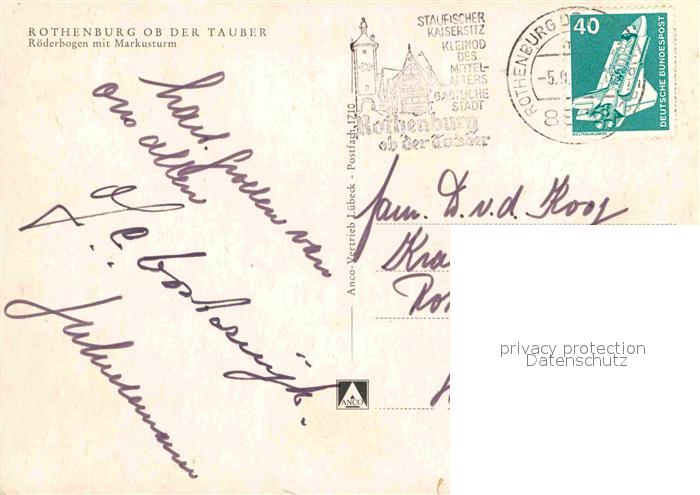 ROTHENBURG OB DER TAUBER
Röderbogen mit Markusturm
hart. groeten van
ons allen
Anco-Vertrieb Lübeck - Postfach 1710
ANCO
STAUFISCHER
KAISERSITZ
KLEINOD
DES
MITTEL-
ALTERS
GASTLICHE
STADT
Rothenburg
ob der Tauber
ROTHENBURG OB
-5.
8
40
DEUTSCHE BUNDESPOST
WELTRAUMLABOR
fam. D.v.d. Kooy
Kra
privacy protection
Datenschutz